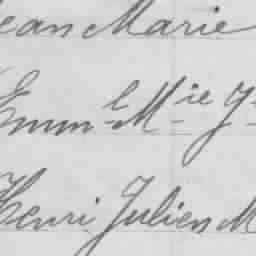 Jean Marie
Emm^l M^ie J
Henri Julien M